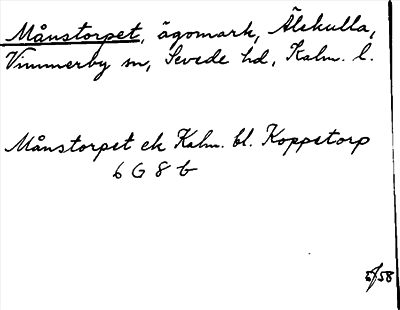 Månstorpet, ägomark, Älekulla,
Vimmerby sn, Sevede hd, Kalm. l.
Månstorpet ek Kalm. bl. Koppetorp
6 G 8 b
5/58